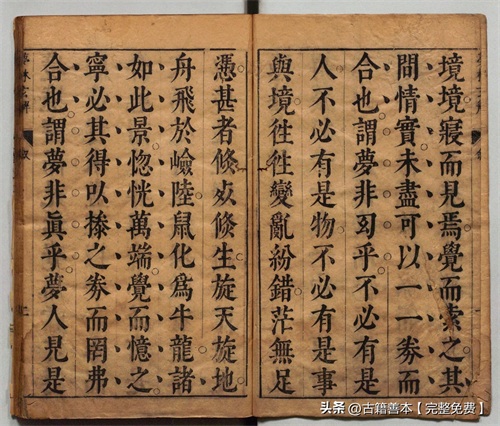 境境寢而見焉覺而索之其
間情實未盡可以一一券而
合也謂夢非幻乎不必有是
人不必有是物不必有是事
與境徃徃變亂紛錯茫無足
憑甚者倏死倏生旋天旋地
舟飛於嶮陸鼠化爲牛龍諸
如此景惚恍萬端覺而憶之
寧必其得以摻之券而罔弗
合也謂夢非眞乎夢人見是
夢林玄解
叙
二
头条 @古籍善本【完整免费】